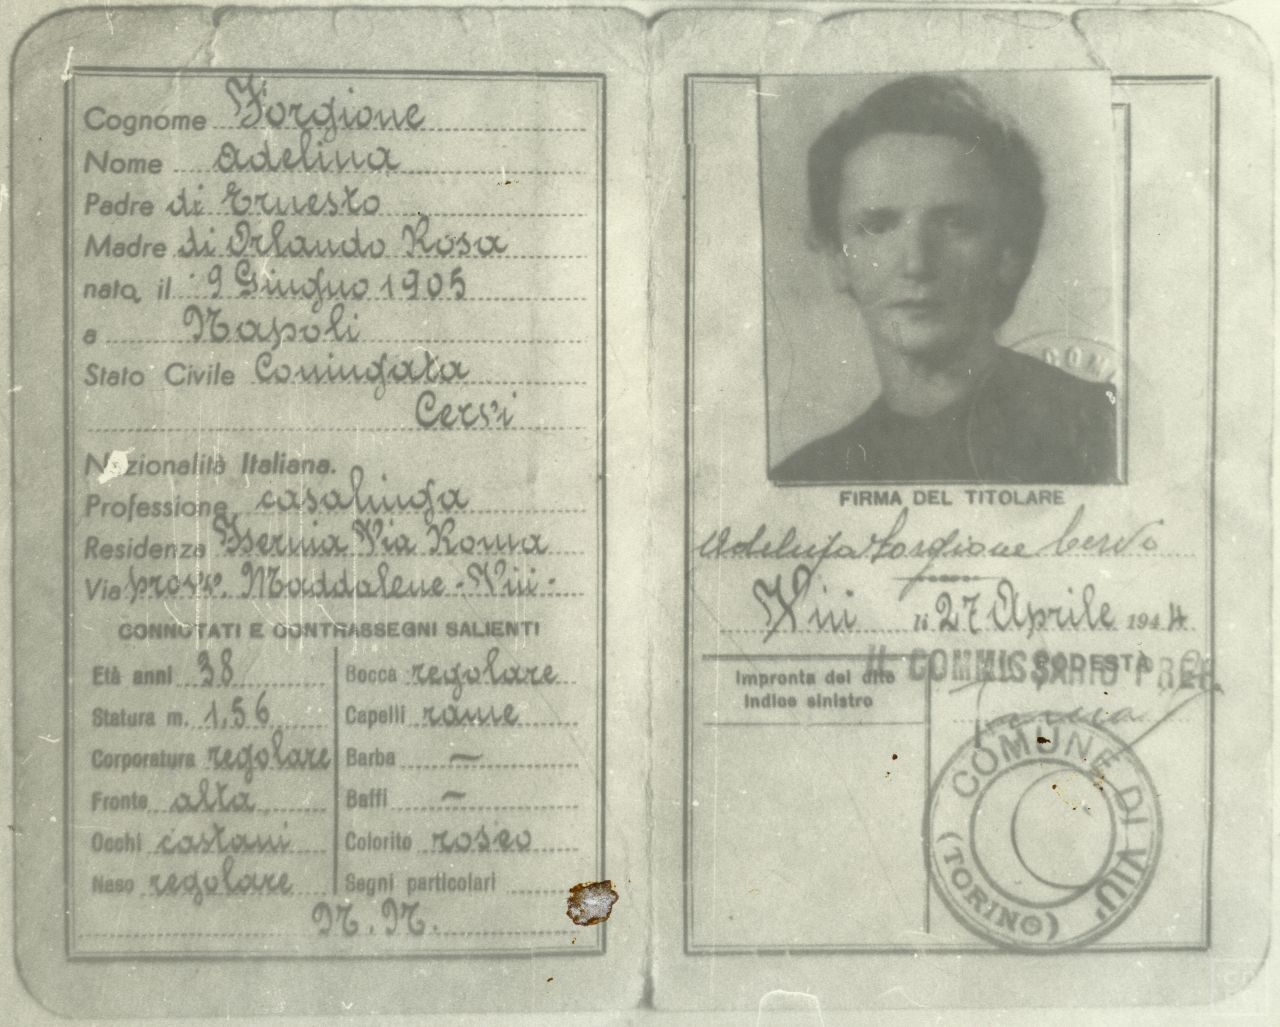 Cognome Forgione
Nome Adelina
Padre di Ernesto
Madre di Orlando Rosa
nato, il 9 Giugno 1905
a Napoli
Stato Civile Coniugata
Cervi
Nazionalità Italiana.
Professione casalinga
Residenza Isernia Via Roma
Via provv. Maddalene - Viù -
CONNOTATI E CONTRASSEGNI SALIENTI
Età anni 38
Statura m. 1,56
Corporatura regolare
Fronte alta
Occhi castani
Naso regolare
Bocca regolare
Capelli rame
Barba —
Baffi —
Colorito roseo
Segni particolari
N. N.
COM
FIRMA DEL TITOLARE
Adelina Forgione Cervi
Viù li 27 Aprile 1944
Impronta del dito
indice sinistro
IL PODESTÀ
IL COMMISSARIO PREF.
COMUNE DI VIÙ
(TORINO)